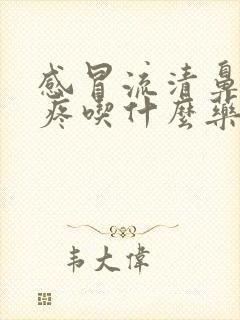 感冒流清鼻
疼喫什麼藥
韦大偉